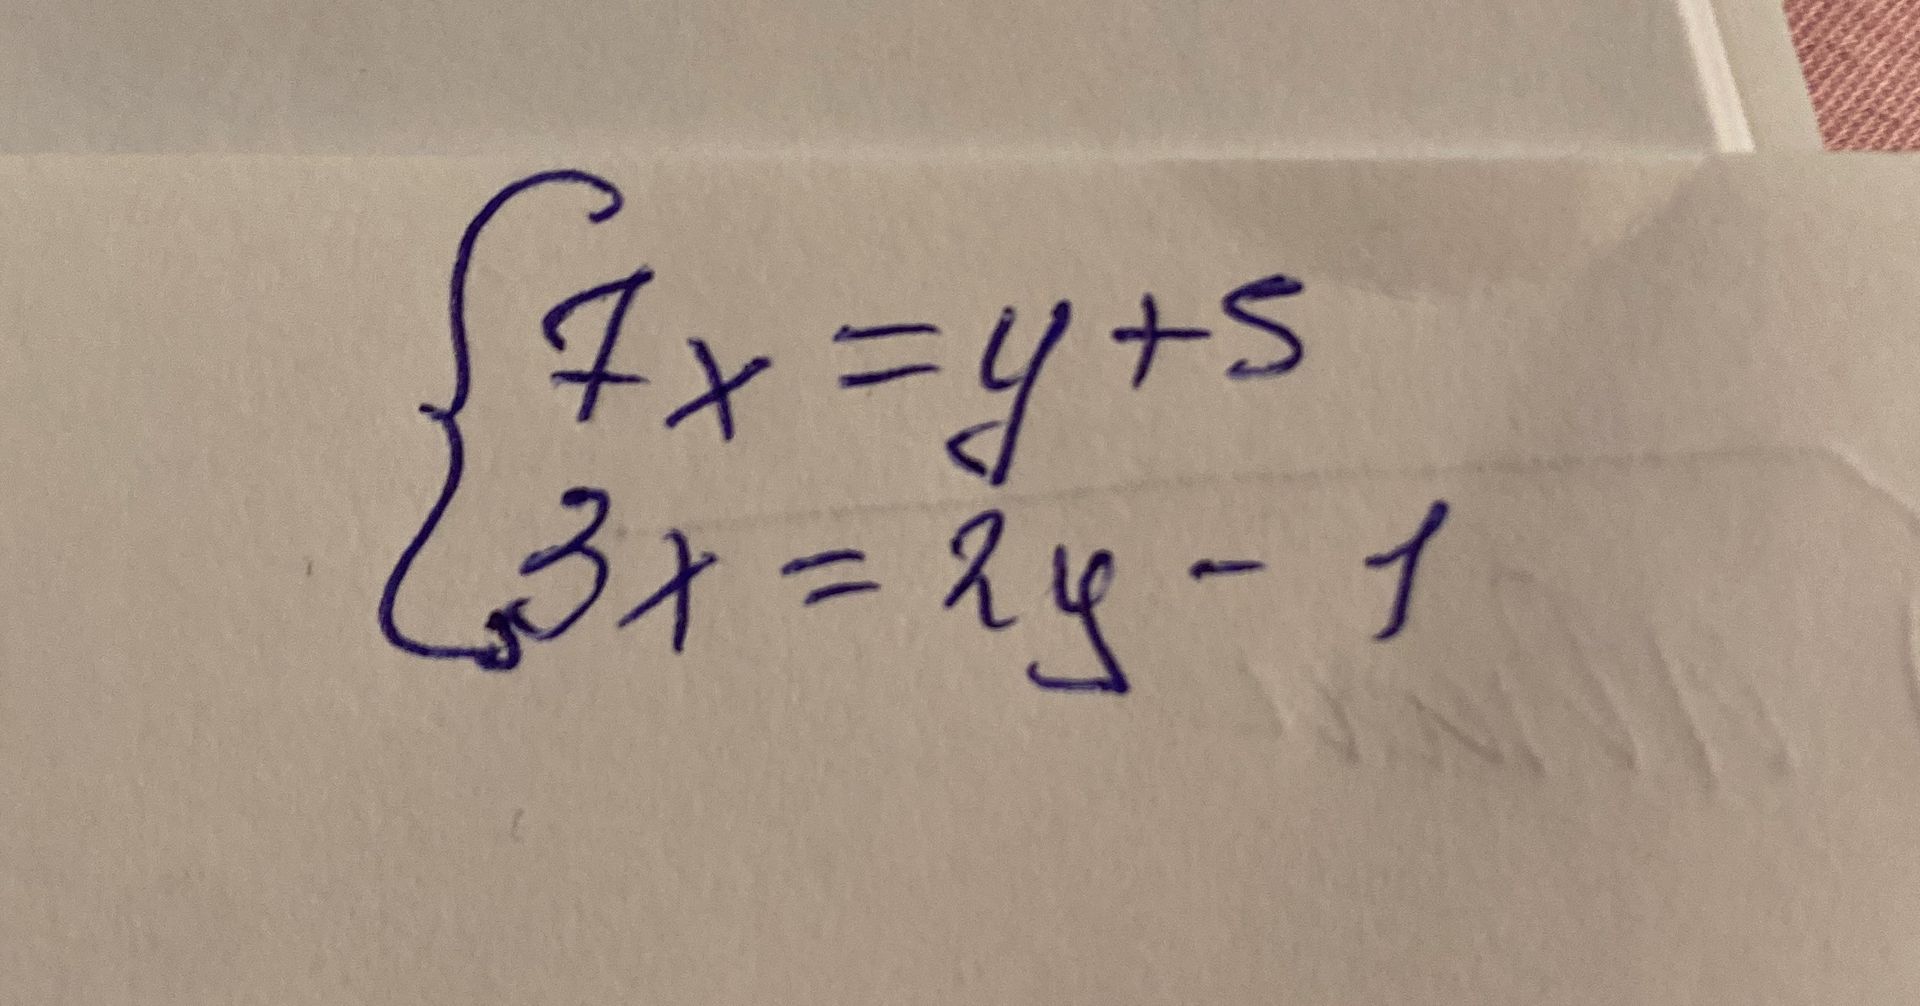 7x = y + 5
3x = 2y - 1